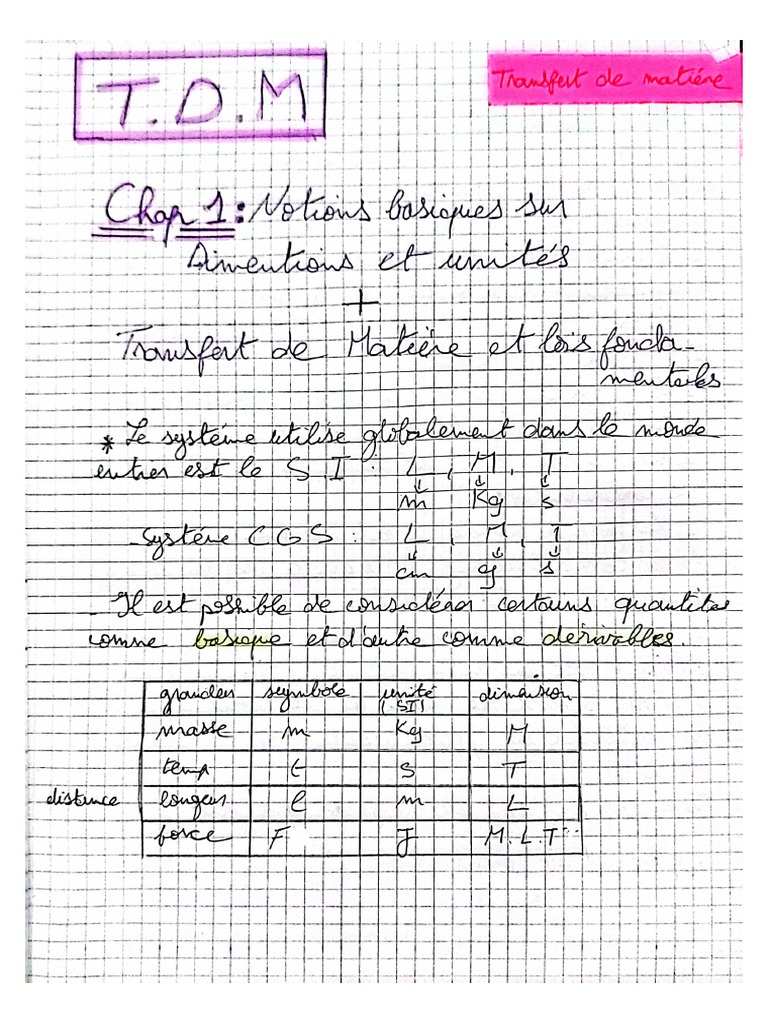 T.D.M
Transfert de matière
Chap 1: Notions basiques sur
Dimentions et unités
+
Transfert de Matière et lois fonda-
mentales
* Le système utilise globalement dans le monde
entier est le S.I : L , M , T
↓ ↓ ↓
m Kg s
- Système C G S : L , M , T
↓ ↓ ↓
cm g s
- Il est possible de considérer certains quantités
comme basique et d'autre comme dérivables.
grandeur symbole unité (SI) dimension
masse m Kg M
temp t s T
distance longeur l m L
force F J M.L.T